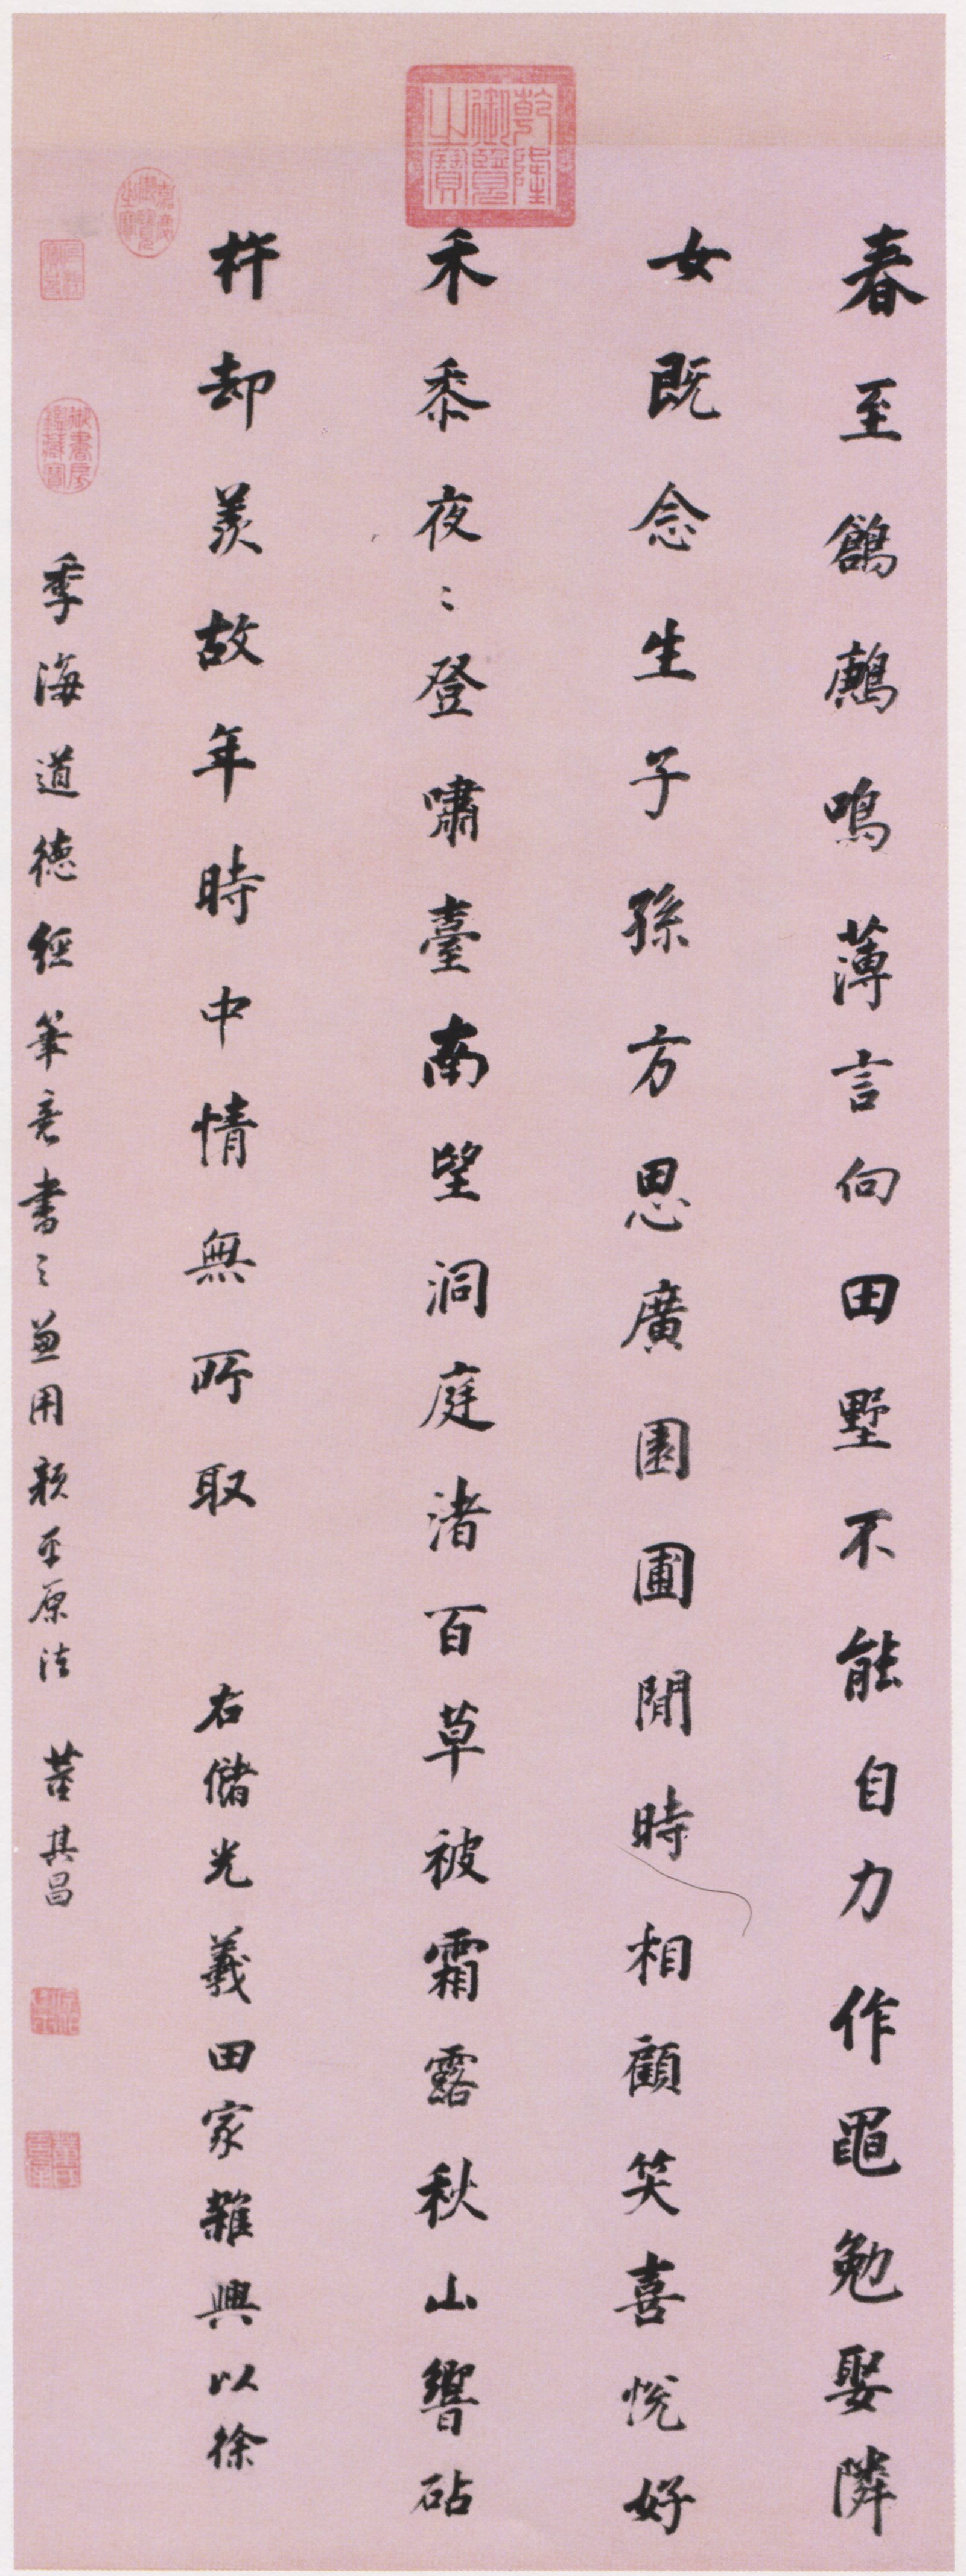 乾隆御覽之寶
春至鶬鶊鳴薄言向田墅不能自力作黽勉娶隣
女既念生子孫方思廣園圃閒時相顧笑喜悅好
禾黍夜〻登嘯臺南望洞庭渚百草被霜露秋山響砧
杵却羨故年時中情無所取 右儲光羲田家雜興以徐
季海道德經筆意書之兼用顏平原法 董其昌
嘉慶御覽之寶
御書房鑑藏寶